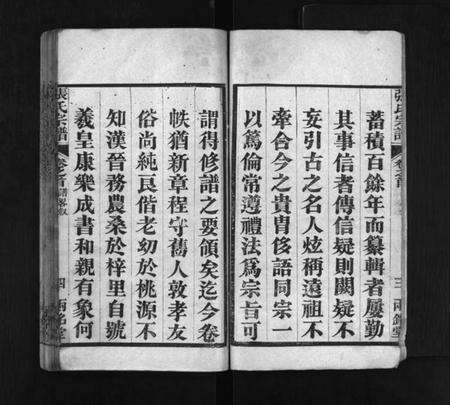 蓄積百餘年而纂輯者屢勤
其事信者傳信疑則闕疑不
妄引古之名人炫稱遠祖不
牽合今之貴胄侈語同宗一
以篤倫常遵禮法為宗旨可
張氏宗譜
卷之首
三
兩銘堂
張氏宗譜
卷之首 譜略敘
四
兩銘堂
謂得修譜之要領矣迄今卷
帙猶新章程守舊人敦孝友
俗尚純良偕老幼於桃源不
知漢晉務農桑於梓里自號
羲皇康樂成書和親有象何